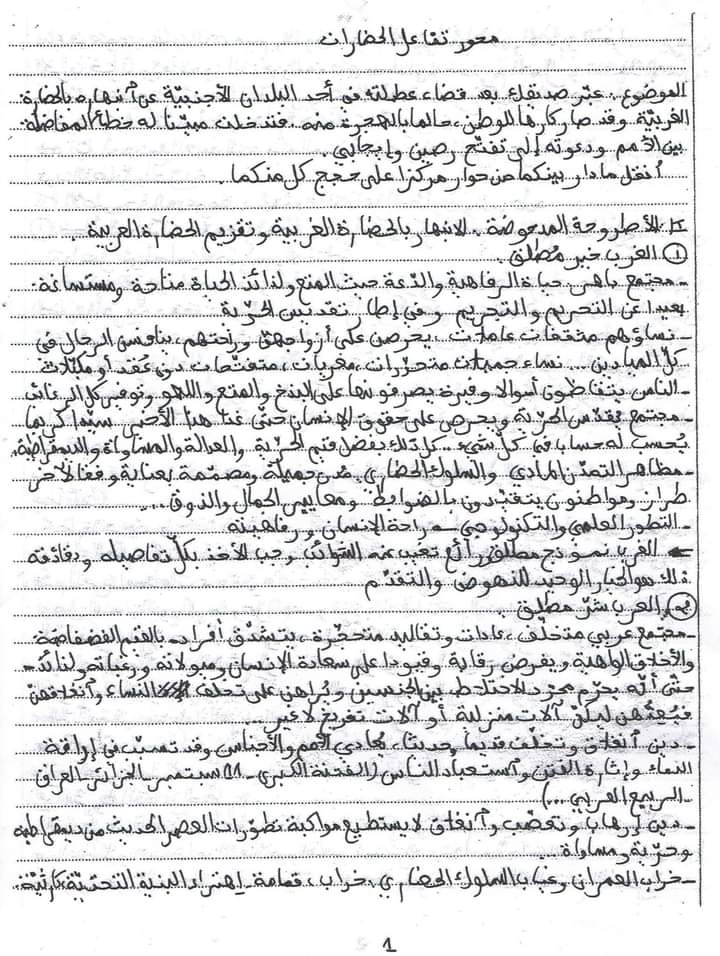 محور تفاعل الحضارات
الموضوع: عبّر صديقك بعد قضاء عطلته في أحد البلدان الأجنبيّة عن آنبهاره بالحضارة
الغربيّة وقد صار كارها للوطن، حالما بالهجرة منه. فتدخلت مبيّنا له خطأ المفاضلة
بين الأمم ودعوته إلى تفتّح رصين وإيجابي.
أنقل ما دار بينكما من حوار مركزا على حجج كل منكما.
I - الأطروحة المدحوضة: الانبهار بالحضارة الغربية وتقزيم الحضارة العربية.
① الغرب خير مطلق.
- مجتمع باهر: حياة الرفاهية والدّعة حيث المتع ولذائذ الحياة متاحة ومستساغة.
بعيدا عن التحريم والتجريم وفي إطار تقديس الحرّية
- نساؤهم مثقفات عاملات.. يحرصن على أزواجهنّ وراحتهم، ينافسن الرجال في
كلّ الميادين... نساء جميلات متحرّرات، مغريات، متفتّحات دون عُقد أو مكبّلات
- الناس يتقاطون أموالا وفيرة يصرفونها على البذخ والمتع واللهو وتوفير كل الرغائب
- مجتمع يقدّس الحرّية ويحرص على حقوق الإنسان حتّى غدا هذا الأخير سيّدا كريما
يُحسب له حساب في كلّ شيء.. كل ذلك بفضل قيم الحرّية والعدالة والمساواة والديمقراطية
- مظاهر التمدّن المادي والسلوك الحضاري: مدن جميلة ومصمّمة بعناية وفقا لآخر
طراز ومواطنون يتقيّدون بالضوابط ومعايير الجمال والذوق...
- التطور العلمي والتكنولوجي ← راحة الإنسان ورفاهيته
← الغرب نموذج مطلق رائع تغيب عنه الشوائب وجب الأخذ بكلّ تفاصيله ودقائقه
ذلك هو الخيار الوحيد للنهوض والتقدّم
② العرب شرّ مطلق.
- مجتمع عربي متخلّف: عادات وتقاليد متحجّرة، يتشدّق أفراده بالقيم الفضفاضة
والأخلاق الواهية ويفرض رقابة وقيودا على سعادة الإنسان وميولاته ورغباته ولذائذه
حتّى أنّه يحرّم مجرّد الاختلاط بين الجنسين ويُراهن على تخلف النساء وآنغلاقهنّ
فيُعِدّهن ليكنّ آلات منزلية أو آلات تفريخ لا غير...
- دين آنغلاق وتخلّف قديما وحديثا، يعادي الأمم والأجناس وقد تسبّب في إراقة
الدماء وإثارة الفتن وآستعباد الناس (الفتنة الكبرى - 11 سبتمبر - الجزائر - العراق
- الربيع العربي...)
- دين إرهاب وتعصّب وآنغلاق لا يستطيع مواكبة تطوّرات العصر الحديث من ديمقراطية
وحرّية ومساواة...
- خراب العمران وغياب السلوك الحضاري: خراب، قمامة - إهتراء البنية التحتيّة، كارثيّة.
1